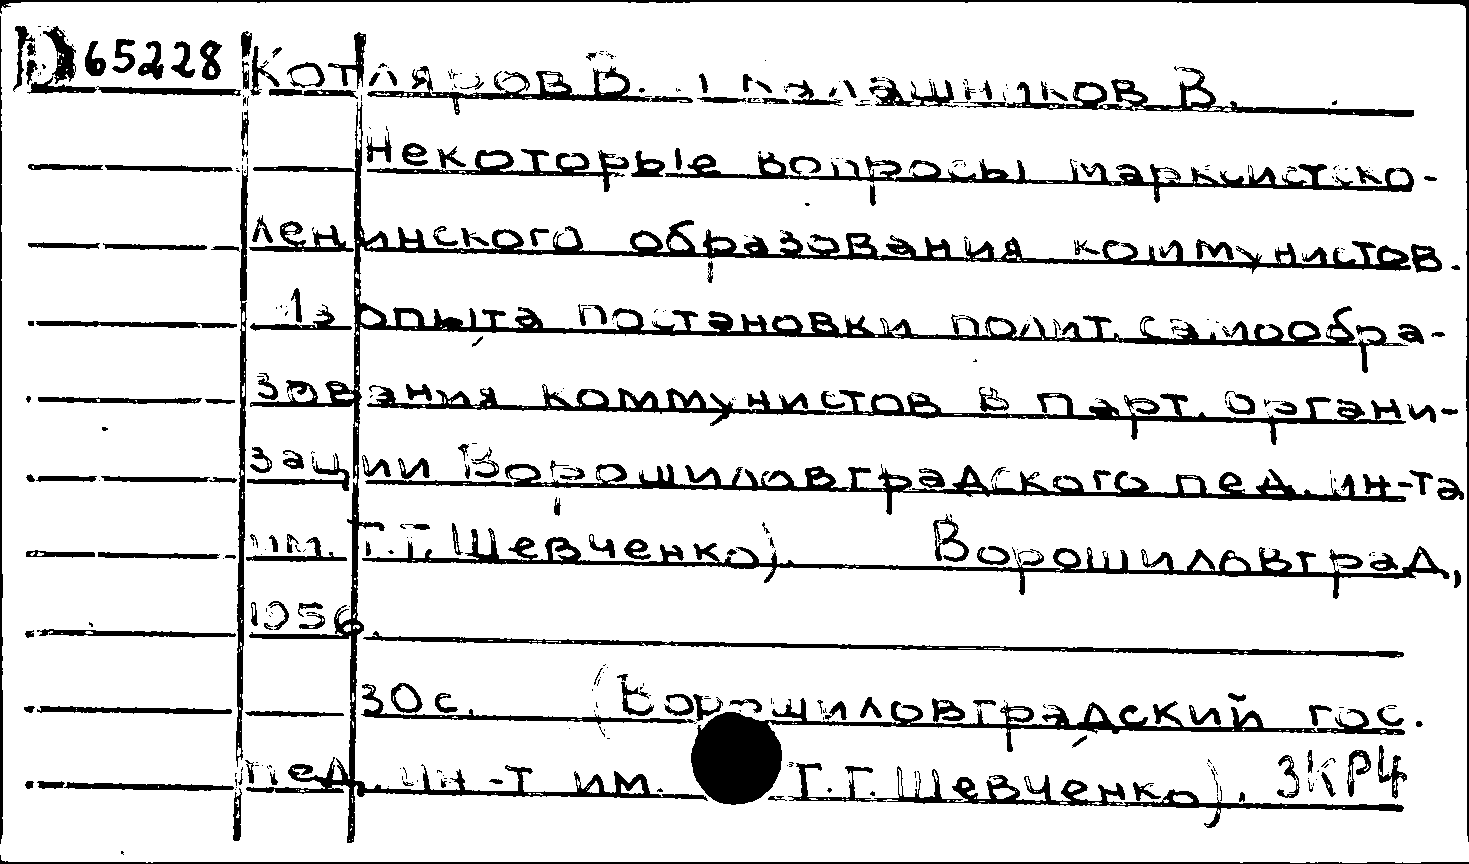 D 65228 Котляров В. и Калашников В.
Некоторые вопросы марксистско-
ленинского образования коммунистов.
Из опыта постановки полит. самообра-
зования коммунистов в парт. органи-
зации Ворошиловградского пед. ин-та
им. Т.Г. Шевченко). Ворошиловград,
1956.
30 с. (Ворошиловградский гос.
пед. ин-т им. Т.Г. Шевченко). ЗКР4